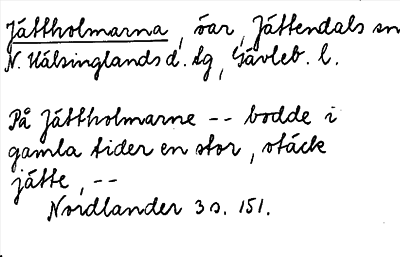 Jättholmarna, öar, Jättendals sn
N. Hälsinglands d. tg, Gävleb. l.
På Jättholmarne -- bodde i
gamla tider en stor, stäck
jätte, --
Nordlander 3 s. 151.